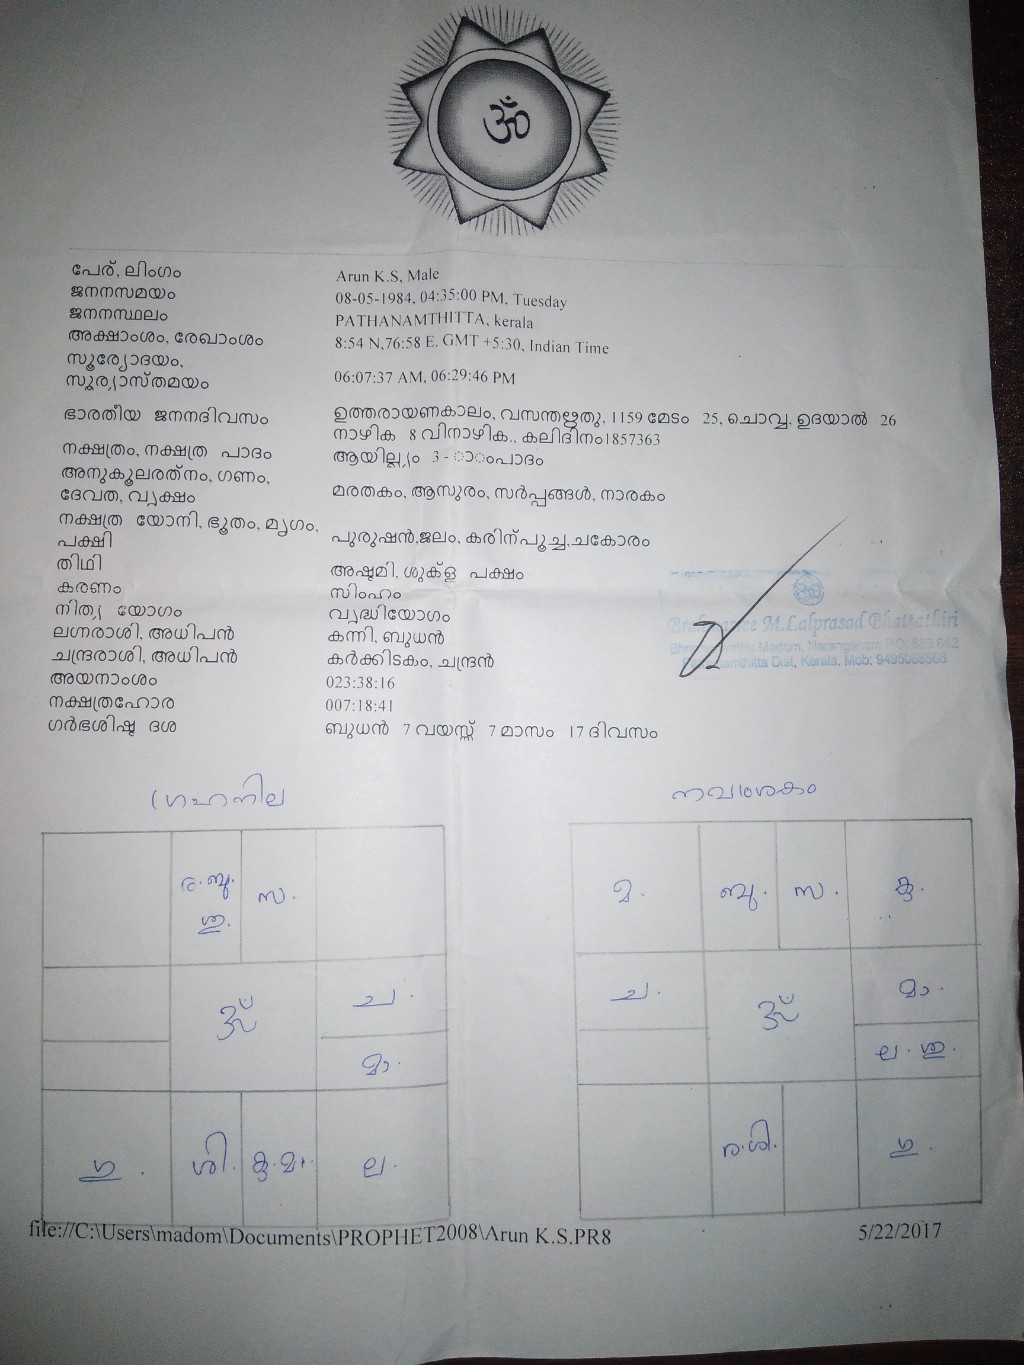 ॐ
പേര്, ലിംഗം Arun K.S, Male
ജനനസമയം 08-05-1984, 04:35:00 PM, Tuesday
ജനനസ്ഥലം PATHANAMTHITTA, kerala
അക്ഷാംശം, രേഖാംശം 8:54 N,76:58 E. GMT +5:30, Indian Time
സൂര്യോദയം,
സൂര്യാസ്തമയം 06:07:37 AM, 06:29:46 PM
ഭാരതീയ ജനനദിവസം ഉത്തരായണകാലം, വസന്തഋതു, 1159 മേടം 25, ചൊവ്വ, ഉദയാൽ 26
നാഴിക 8 വിനാഴിക., കലിദിനം1857363
നക്ഷത്രം, നക്ഷത്ര പാദം ആയില്ല്യം 3 - ാ‍ംപാദം
അനുകൂലരത്നം, ഗണം,
ദേവത, വൃക്ഷം മരതകം, ആസുരം, സർപ്പങ്ങൾ, നാരകം
നക്ഷത്ര യോനി, ഭൂതം, മൃഗം,
പക്ഷി പുരുഷൻ,ജലം, കരിന്പൂച്ച,ചകോരം
തിഥി അഷ്ടമി, ശുക്ള പക്ഷം
കരണം സിംഹം
നിത്യ യോഗം വൃദ്ധിയോഗം
ലഗ്നരാശി, അധിപൻ കന്നി, ബുധൻ
ചന്ദ്രരാശി, അധിപൻ കർക്കിടകം, ചന്ദ്രൻ
അയനാംശം 023:38:16
നക്ഷത്രഹോര 007:18:41
ഗർഭശിഷ്ട ദശ ബുധൻ 7 വയസ്സ് 7 മാസം 17 ദിവസം
M.Lalprasad Bhattathiri
Madom, Naranganam P.O. 689 642
Dist, Kerala. Mob:
ഗ്രഹനില നവാംശകം
ര. ബു.
ശു.
സ.
മ.
ബു.
സ.
കു.
ച.
ॐ
ച.
ॐ
മാ.
മാ.
ല. ശു.
ഗു.
ശി.
കു. മാ.
ല.
ര. ശി.
ഗു.
file://C:\Users\madom\Documents\PROPHET2008\Arun K.S.PR8 5/22/2017